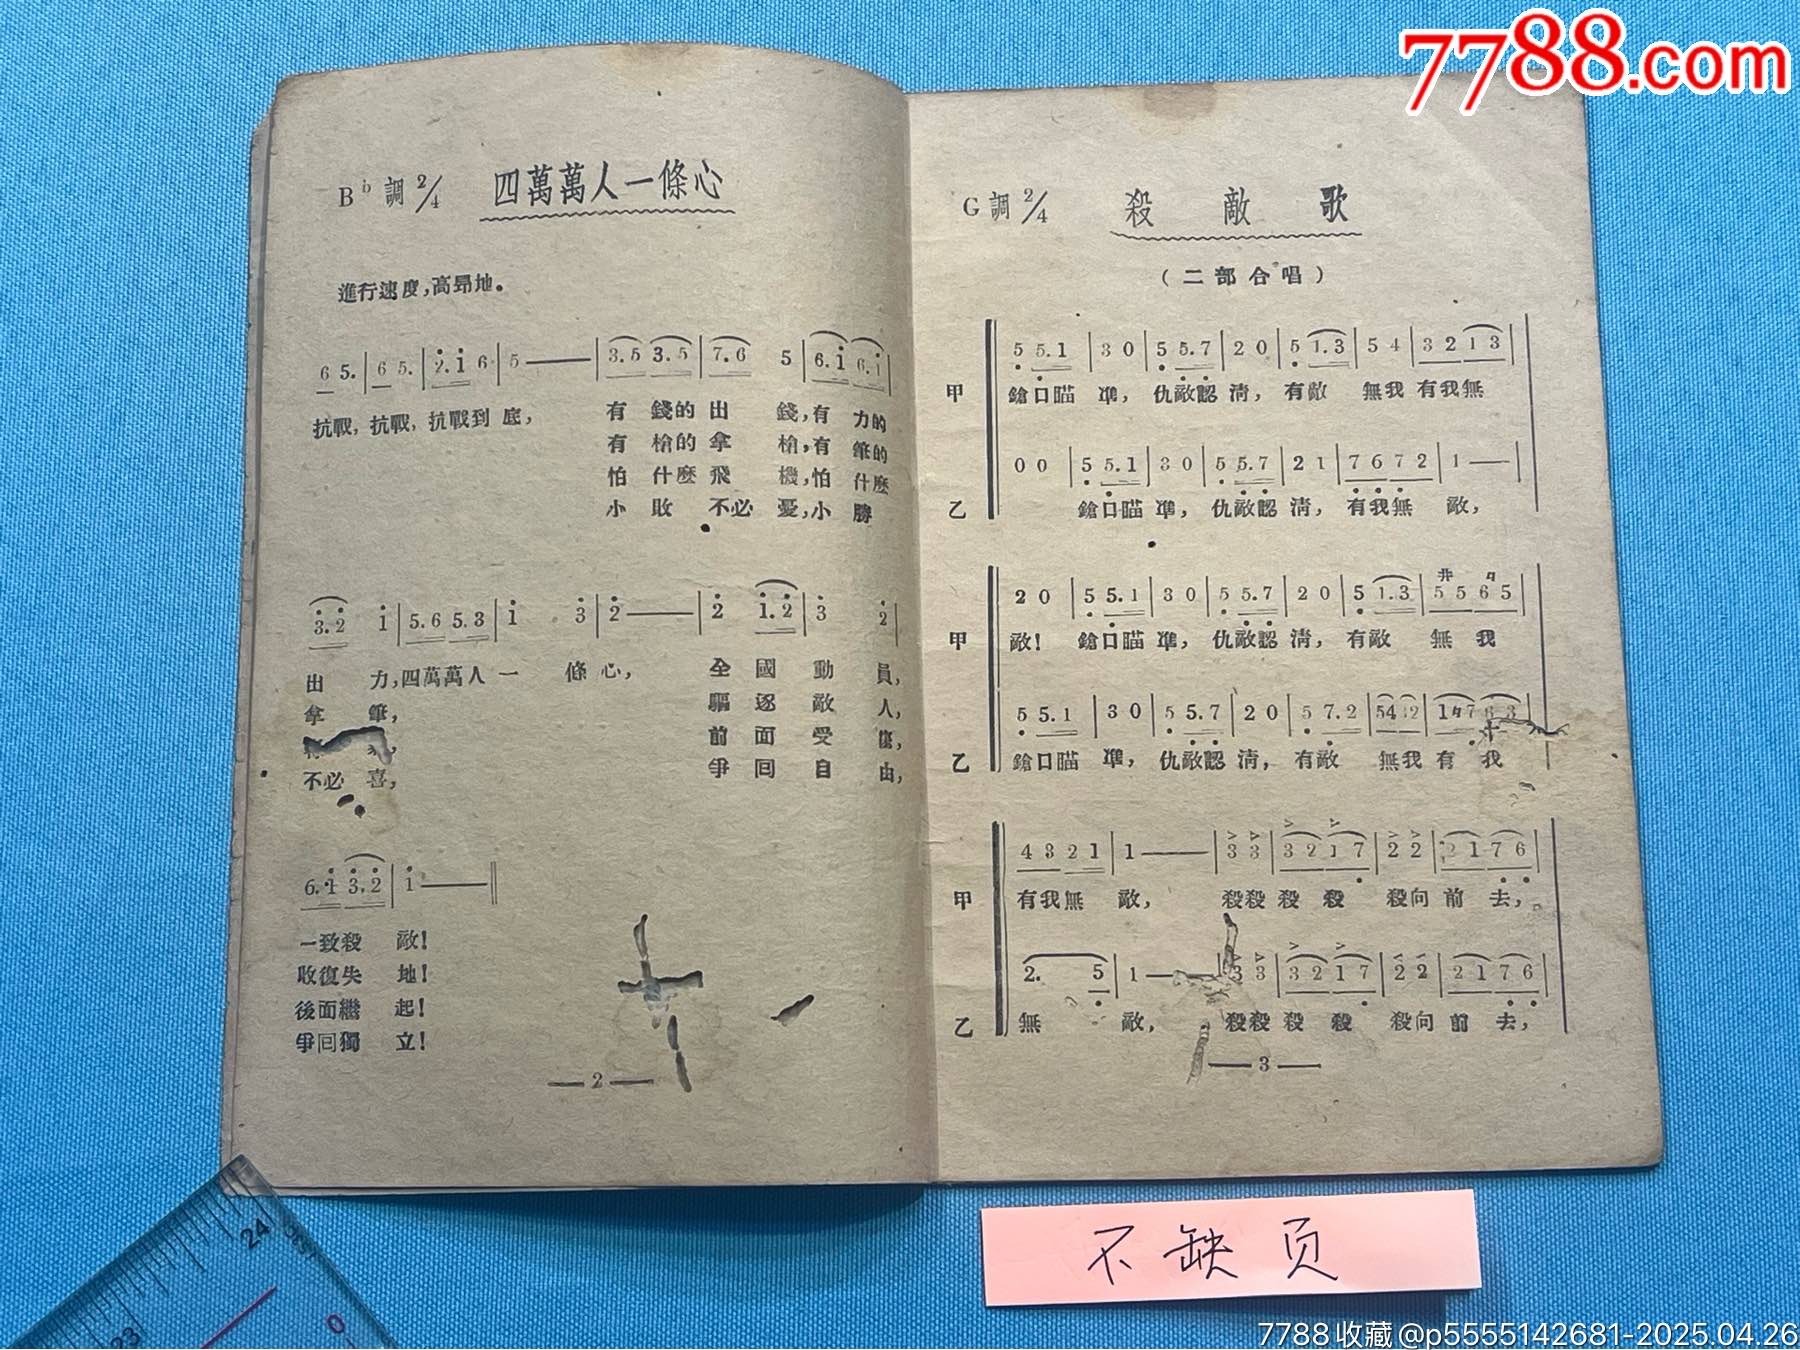 7788.com
Bb調 2/4 四萬萬人一條心
進行速度,高昂地。
6 5. | 6 5. | 2.1 6 | 5 —— | 3.5 3.5 | 7.6 5 | 6.1 6.1 |
抗戰,抗戰,抗戰到底, 有錢的出錢,有力的
有槍的拿槍,有筆的
怕什麽飛機,怕什麽
小敗不必憂,小勝
3.2 1 | 5.6 5.3 | 1 3 | 2 —— | 2 1.2 | 3 2 |
出力,四萬萬人一條心, 全國動員,
拿筆, 驅逐敵人,
前面受傷,
不必喜, 爭回自由,
6.1 3.2 | 1 —— ‖
一致殺敵!
收復失地!
後面繼起!
爭回獨立!
— 2 —
G調 2/4 殺敵歌
(二部合唱)
5 5.1 | 3 0 | 5 5.7 | 2 0 | 5 1.3 | 5 4 | 3 2 1 3 |
甲 鎗口瞄準, 仇敵認清, 有敵無我有我無
0 0 | 5 5.1 | 3 0 | 5 5.7 | 2 1 | 7 6 7 2 | 1 — |
乙 鎗口瞄準, 仇敵認清, 有我無敵,
2 0 | 5 5.1 | 3 0 | 5 5.7 | 2 0 | 5 1.3 | 5 5 6 5 |
甲 敵! 鎗口瞄準, 仇敵認清, 有敵無我
5 5.1 | 3 0 | 5 5.7 | 2 0 | 5 7.2 | 54 32 | 1 7 6 3 |
乙 鎗口瞄準, 仇敵認清, 有敵無我有我
4 3 2 1 | 1 —— | 3 3 | 3 2 1 7 | 2 2 | 2 1 7 6 |
甲 有我無敵, 殺殺殺殺 殺向前去,
2. 5 | 1 — | 3 3 | 3 2 1 7 | 2 2 | 2 1 7 6 |
乙 無敵, 殺殺殺殺 殺向前去,
— 3 —
不缺页
24
23
0
7788收藏@p5555142681-2025.04.26